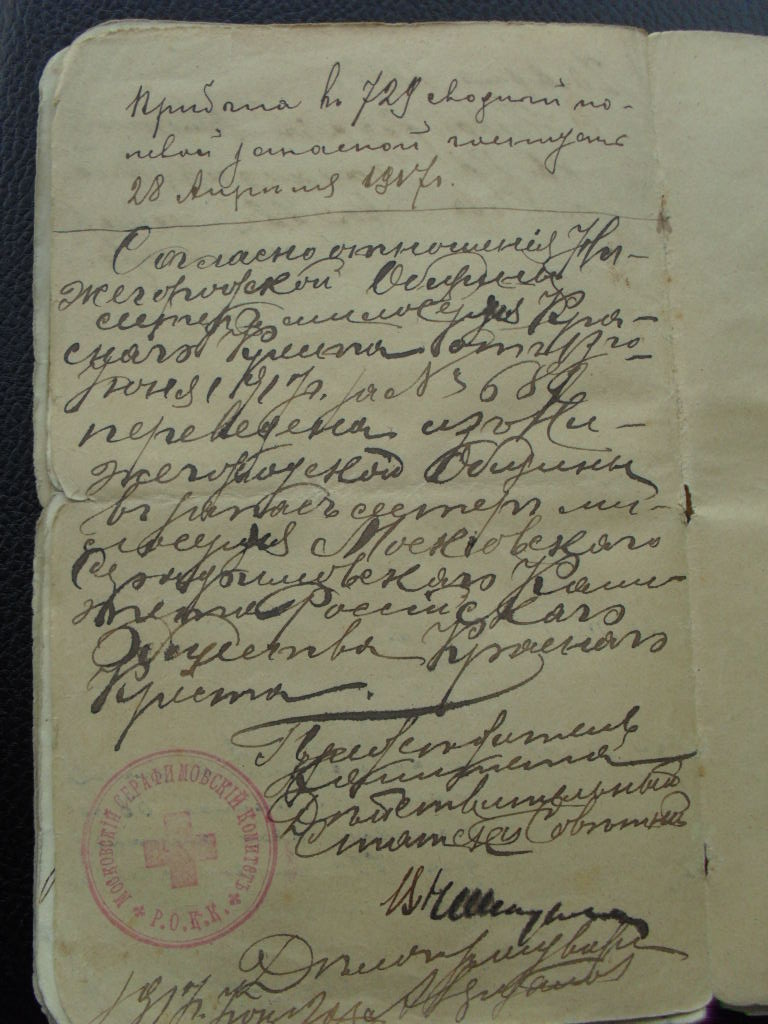 Прибыла въ 729 сводный по-
левой запасной госпиталь
28 Апреля 1917г.
Согласно отношенія Ни-
жегородской Общины
сестеръ милосердія Кра-
снаго Креста отъ
Іюня 1917г. за № 689
переведена изъ Ни-
жегородской Общины
въ запасъ сестеръ ми-
лосердія Московскаго
Серафимовскаго Коми-
тета Россійскаго
Общества Краснаго
Креста.
Предсѣдатель
Комитета
Дѣйствительный
Статскій Совѣтникъ
МОСКОВСКІЙ СЕРАФИМОВСКІЙ КОМИТЕТЪ
Р.О.К.К.
Дѣлопроизводитель
1917г.